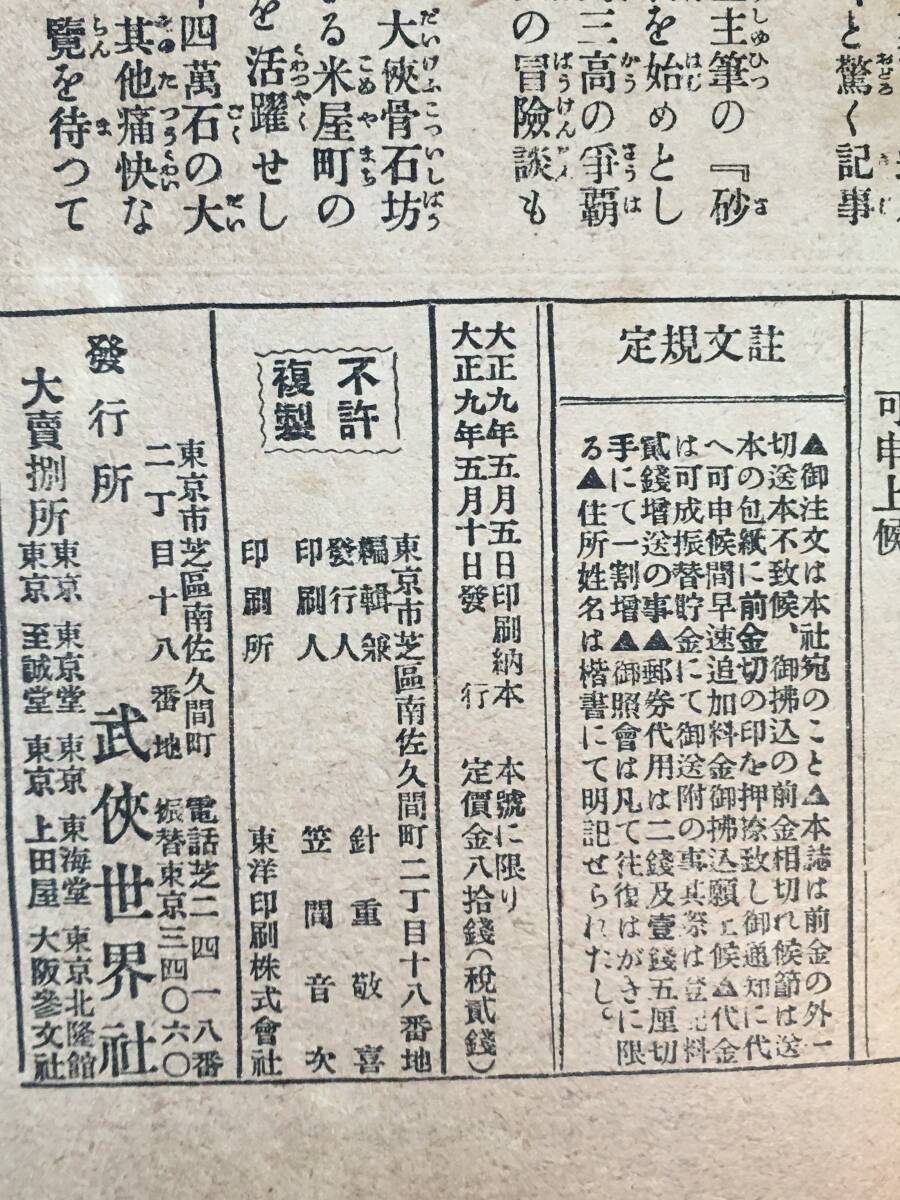 と驚く記事
主筆の『砂
を始めとし
三高の爭覇
の冒險談も
大俠骨石坊
る米屋町の
を活躍せし
四萬石の大
其他痛快な
覽を待つて
可申上候
註文規定
▲御注文は本社宛のこと▲本誌は前金の外一
切送本不致候、御拂込の前金相切れ候節は送
本の包紙に前金切の印を押捺致し御通知に代
へ可申候間早速追加料金御拂込願上候▲代金
は可成振替貯金にて御送附の事其際は登記料
貳錢增送の事▲郵券代用は二錢及壹錢五厘切
手にて一割增▲御照會は凡て往復はがきに限
る▲住所姓名は楷書にて明記せられたし。
大正九年五月五日印刷納本 本號に限り
大正九年五月十日發行 定價金八拾錢(稅貳錢)
不許
複製
東京市芝區南佐久間町二丁目十八番地
編輯兼
發行人 針重敬喜
印刷人 笠間音次
印刷所 東洋印刷株式會社
東京市芝區南佐久間町 電話芝二四一八番
二丁目十八番地 振替東京三四〇六〇
發行所 武俠世界社
大賣捌所
東京 東京堂 東京 東海堂 東京北隆館
東京 至誠堂 東京 上田屋 大阪參文社